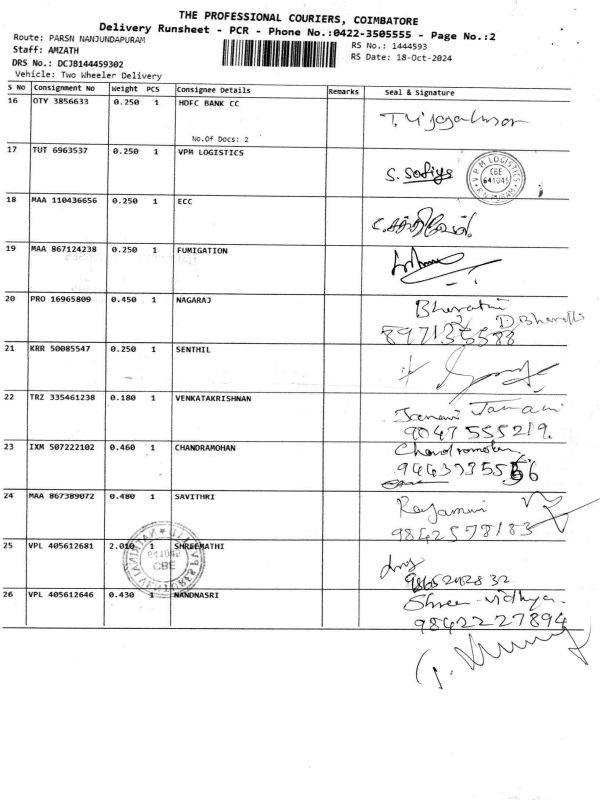 THE PROFESSIONAL COURIERS, COIMBATORE
Delivery Runsheet - PCR - Phone No.:0422-3505555 - Page No.:2
Route: PARSN NANJUNDAPURAM
RS No.: 1444593
Staff: AMZATH
RS Date: 18-Oct-2024
DRS No.: DCJB144459302
Vehicle: Two Wheeler Delivery
S No Consignment No Weight PCS Consignee Details Remarks Seal & Signature
16 OTY 3856633 0.250 1 HDFC BANK CC
No.Of Docs: 2
17 TUT 6963537 0.250 1 VPM LOGISTICS S. Sofiya VPM LOGISTICS CBE 641045
18 MAA 110436656 0.250 1 ECC
19 MAA 867124238 0.250 1 FUMIGATION
20 PRO 16965809 0.450 1 NAGARAJ Bharathi
21 KRR 50085547 0.250 1 SENTHIL
22 TRZ 335461238 0.180 1 VENKATAKRISHNAN Janani Janani
9047555219.
23 IXM 507222102 0.460 1 CHANDRAMOHAN
24 MAA 867389072 0.480 1 SAVITHRI
9842578183
25 VPL 405612681 2.010 1 SHREEMATHI
CBE
26 VPL 405612646 0.430 1 NANDNASRI Shree-vidhya.
9842227894